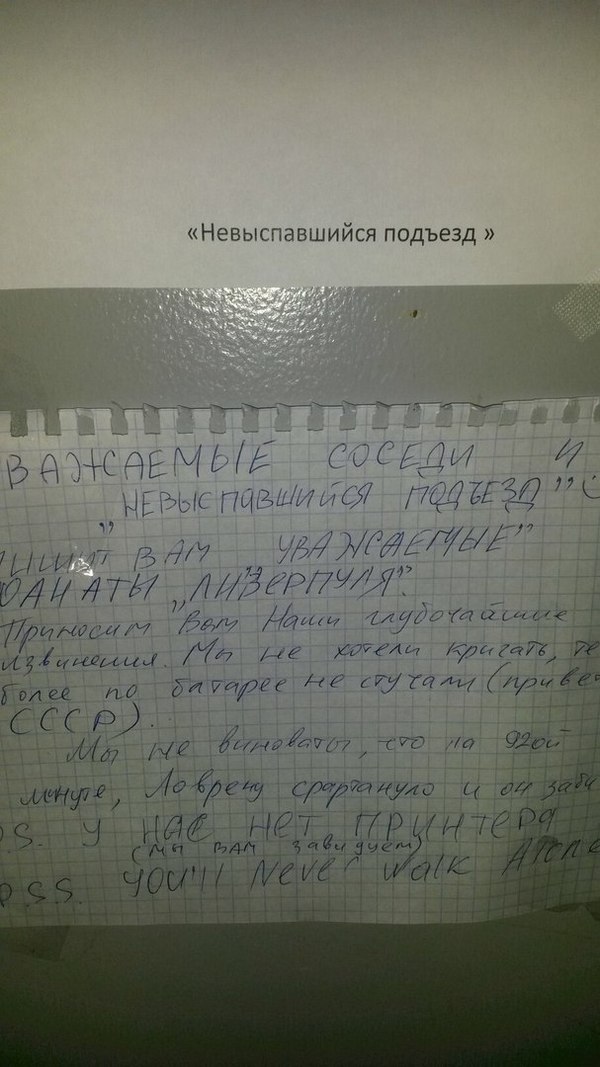 «Невыспавшийся подъезд »
ВАЖАЕМЫЕ СОСЕДИ И
„НЕВЫСПАВШИЙСЯ ПОДЪЕЗД"
ПИШУТ ВАМ УВАЖАЕМЫЕ"
ФАНАТЫ „ЛИВЕРПУЛЯ".
Приносим Вам Наши глубочайшие
извинения. Мы не хотели кричать, те
более по батарее не стучали (привет
СССР).
Мы не виноваты, что на 92ой
минуте, Ловрену срартануло и он заби
P.S. У НАС НЕТ ПРИНТЕРА
(МЫ ВАМ завидуем)
P.S.S. YOU'll Never walk Alone